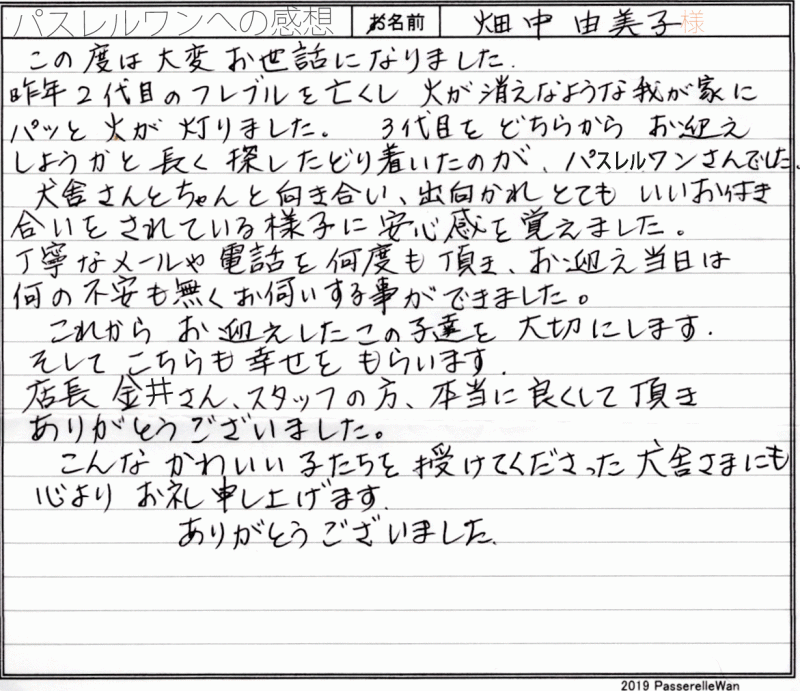 パスレルワンへの感想 お名前 畑中由美子様
この度は大変お世話になりました.
昨年2代目のフレブルを亡くし 火が消えなような我が家に
パッと火が灯りました。 3代目をどちらから お迎え
しようかと長く探したどり着いたのが、パスレルワンさんでした、
犬舎さんとちゃんと向き合い、出向かれとても いいお付き
合いをされている様子に安心感を覚えました。
丁寧なメールや電話を何度も頂き、お迎え当日は
何の不安も無くお伺いする事ができました。
これから お迎えしたこの子達を 大切にします.
そして こちらも幸せを もらいます.
店長 金井さん、スタッフの方、本当に良くして頂き
ありがとうございました。
こんな かわいい子たちを授けてくださった犬舎さまにも
心より お礼申し上げます.
ありがとうございました.
2019 PasserelleWan